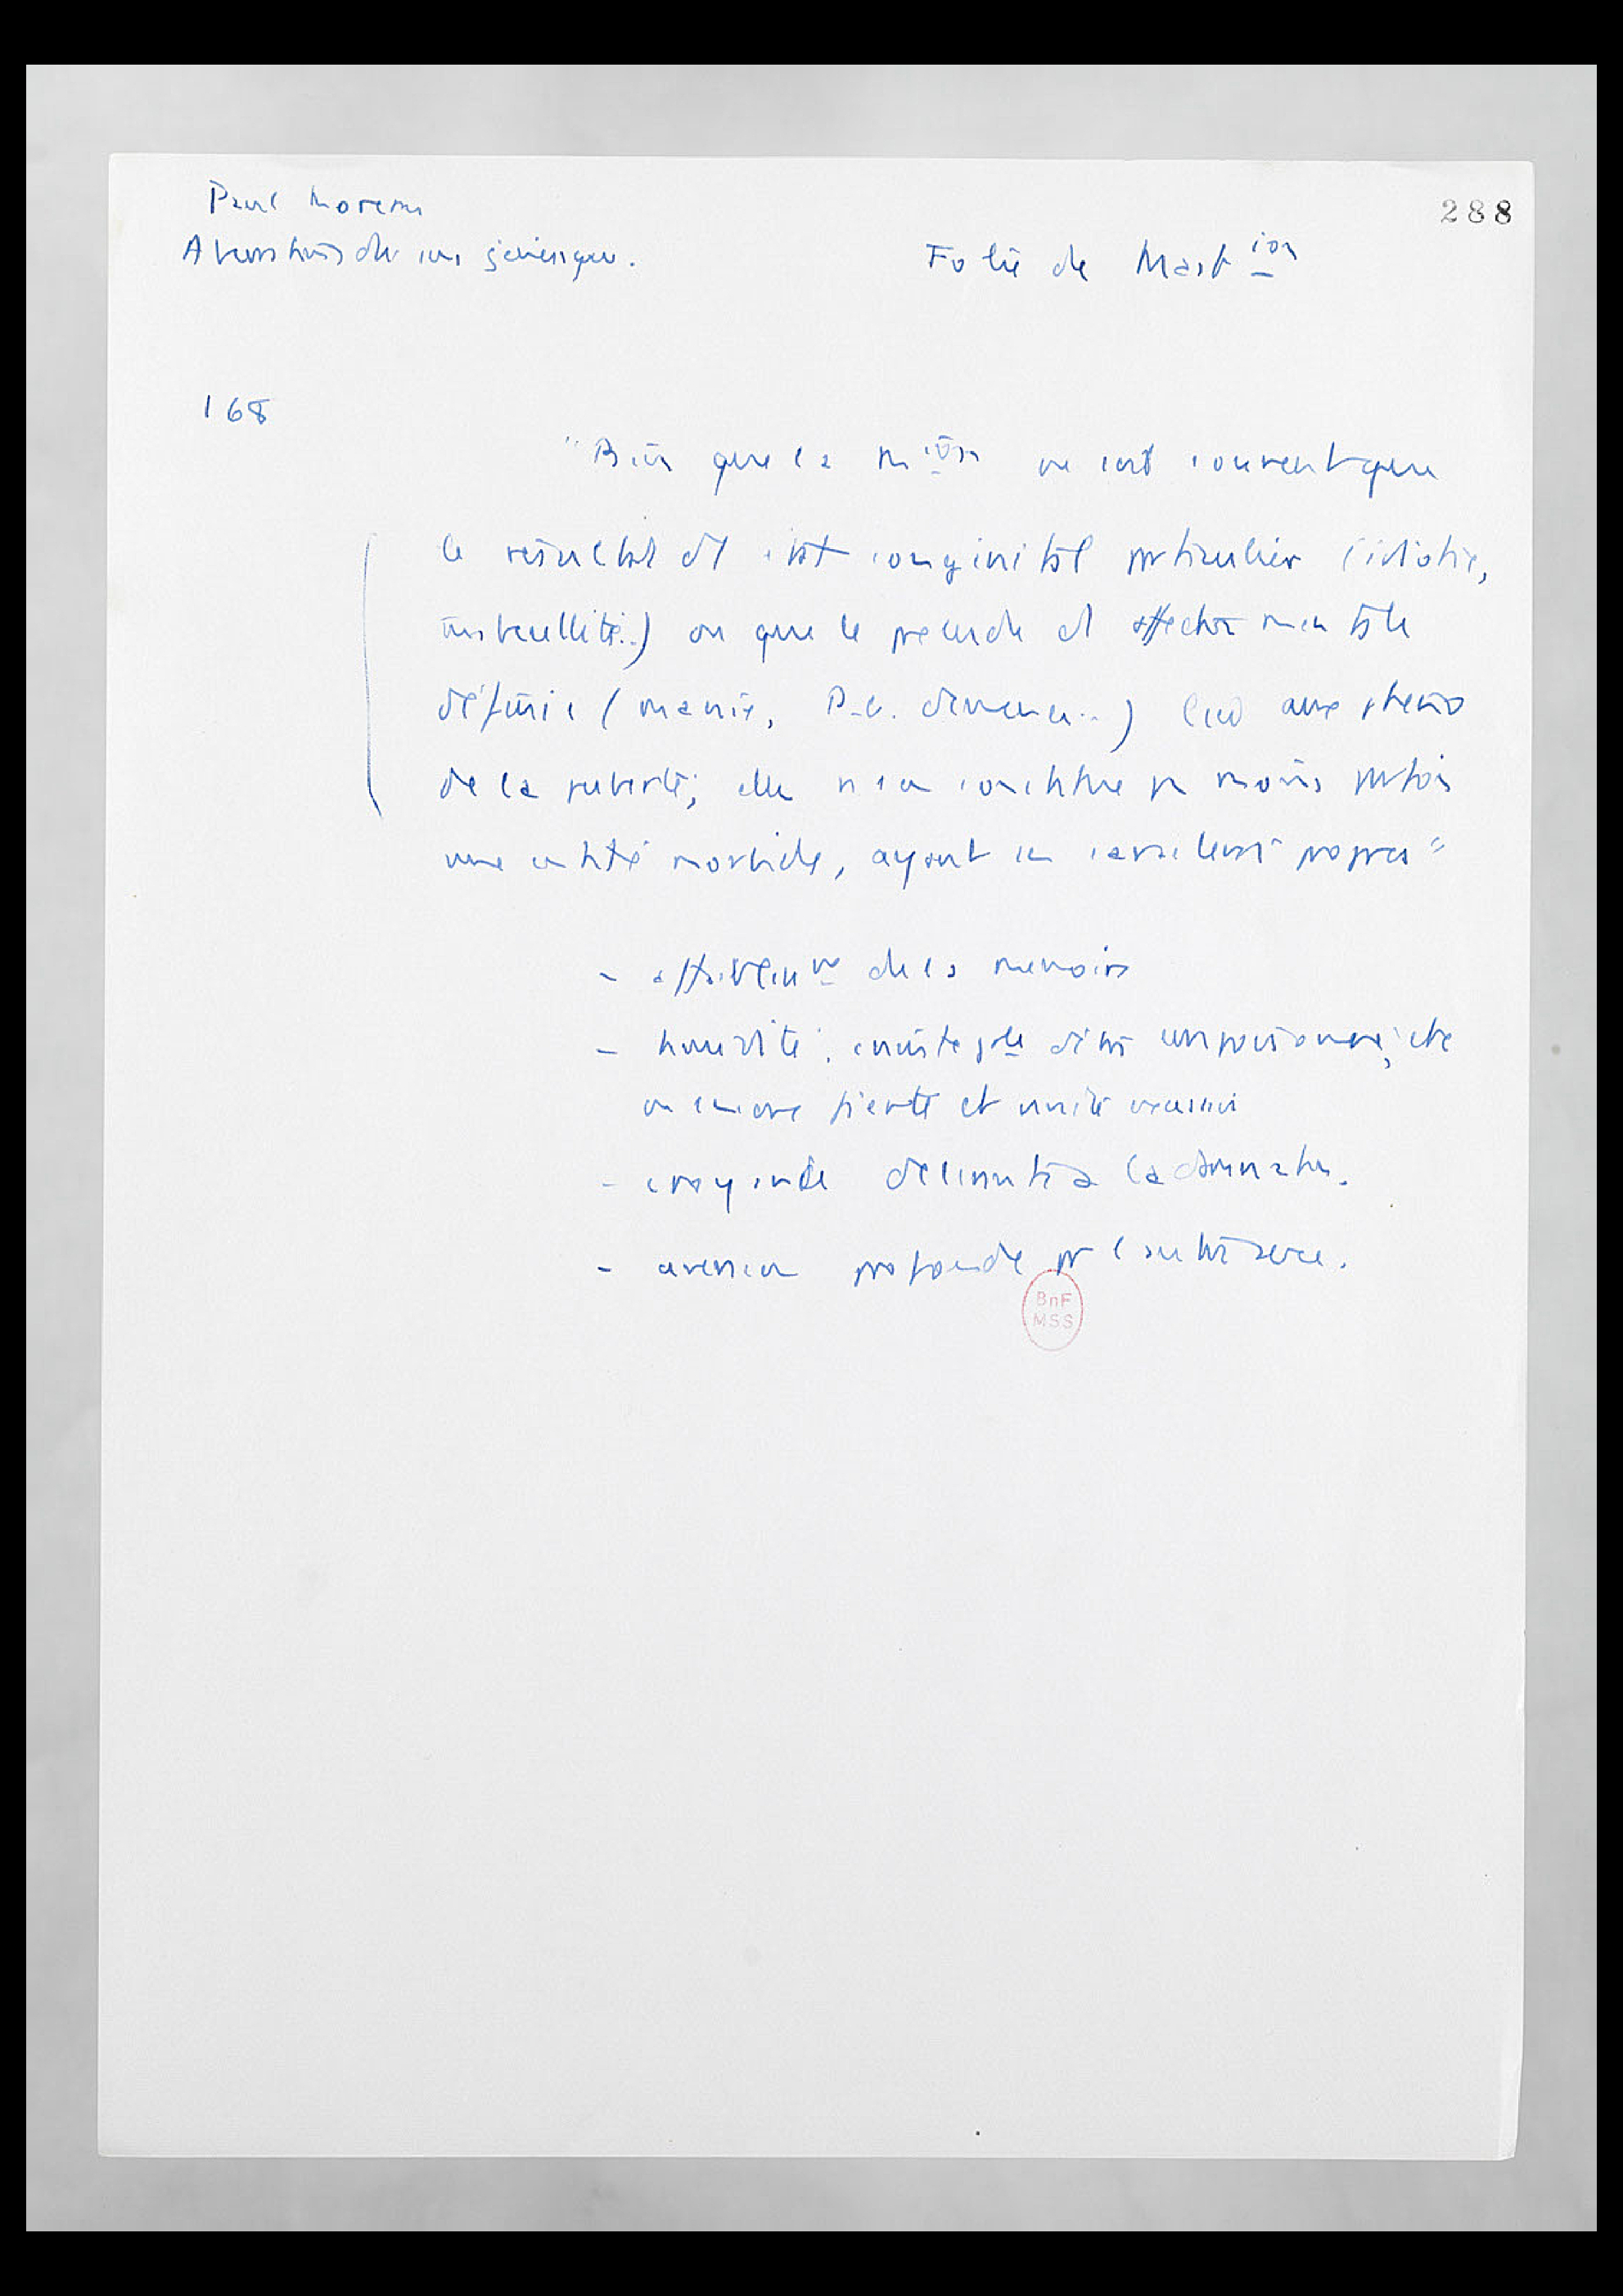 Paul Moreau
288
Aberrations du sens génésique.
Folie de Mast ion
168
"Bien que la mion ne soit souvent que
le résultat d'1 état congénital particulier (idiotie,
imbécillité..) ou que le prélude d'1 affection mentale
définie (manie, P.G. démence..) liée aux phéno
de la puberté; elle n'en constitue pas moins parfois
une entité morbide, ayant ses caractères propres"
- affaiblisement de la mémoire
- timidité, crainte d'être empoisonné, etc
ou encore fierté et vanité excessives
- croyance à la damnation.
- aversion profonde pr l'autre sexe.
BnF
MSS